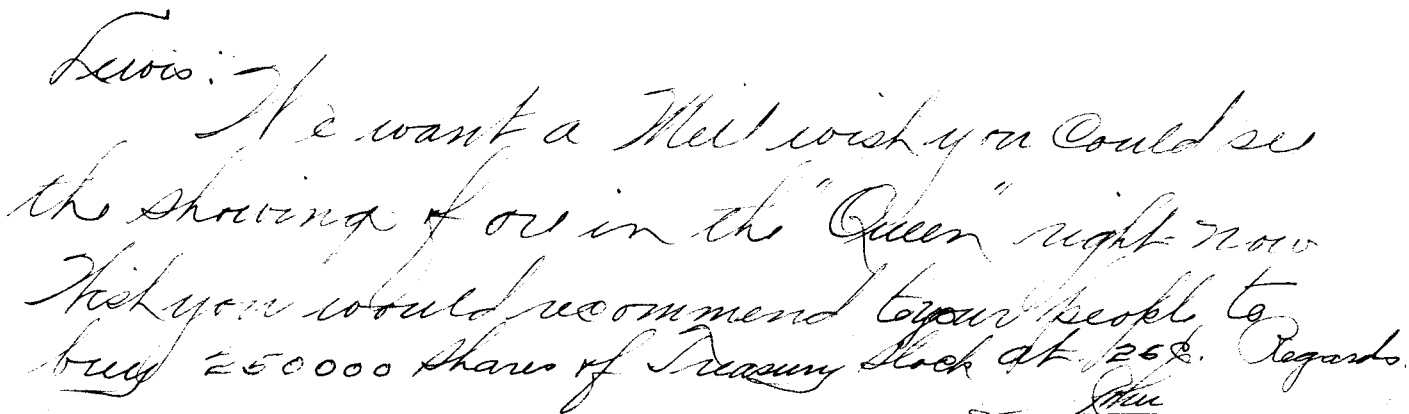 Lewis:
We want a Mill wish you could see
the showing of ore in the "Queen" right now
Wish you would recommend to your people to
buy 250000 shares of Treasury Stock at 25¢. Regards.
John